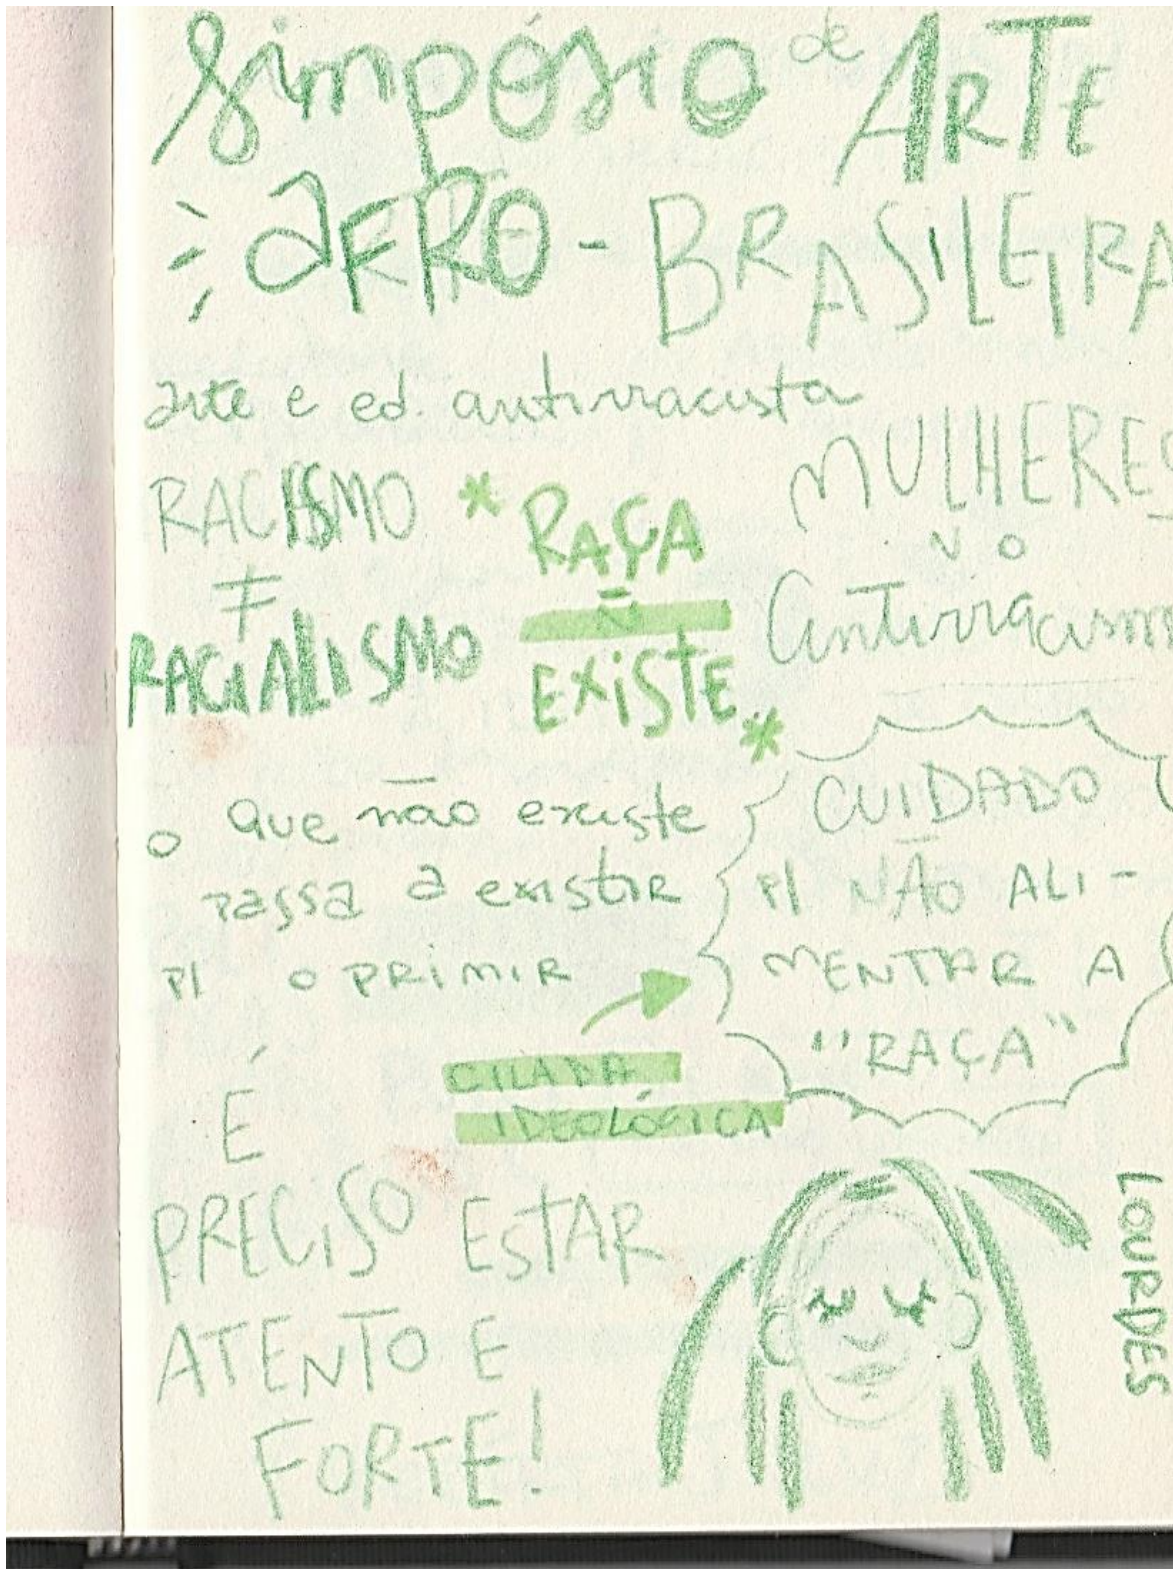 Simpósio de ARTE
AFRO-BRASILEIRA
arte e ed. antirracista
RACISMO
≠
RACIALISMO
* RAÇA
Ñ
EXISTE *
MULHERES
NO
Antirracismo
o que não existe
passa a existir
p/ oprimir
CUIDADO
p/ NÃO ALI-
MENTAR A
"RAÇA"
CILADA
IDEOLÓGICA
É
PRECISO ESTAR
ATENTO E
FORTE!
LOURDES